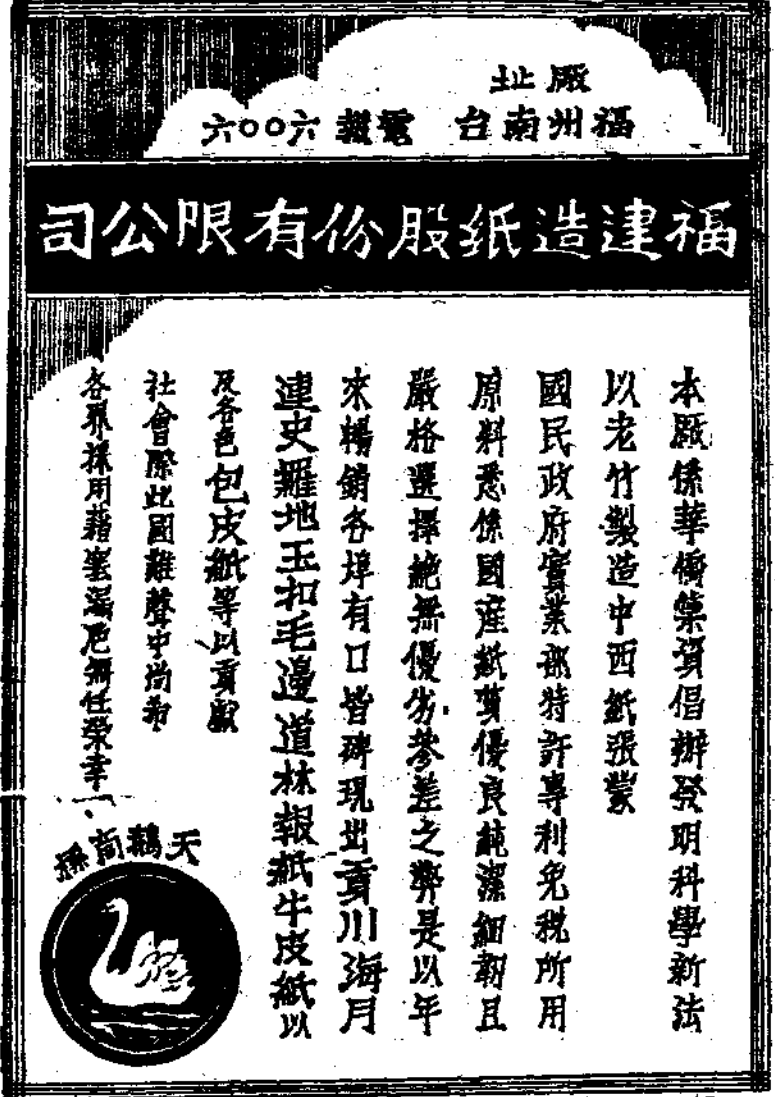 廠址
福州南台 電報六〇〇六
福建造紙股份有限公司
本廠係華僑集資倡辦發明科學新法
以老竹製造中西紙張蒙
國民政府實業部特許專利免稅所用
原料悉係國產紙質優良純潔細韌且
嚴格選擇絶無優劣參差之弊是以年
來暢銷各埠有口皆碑現出貢川海月
連史羅地玉扣毛邊道林報紙牛皮紙以
及各色包皮紙等以貢獻
社會際此國難聲中尚希
各界採用藉塞漏卮無任榮幸
天鵝商標